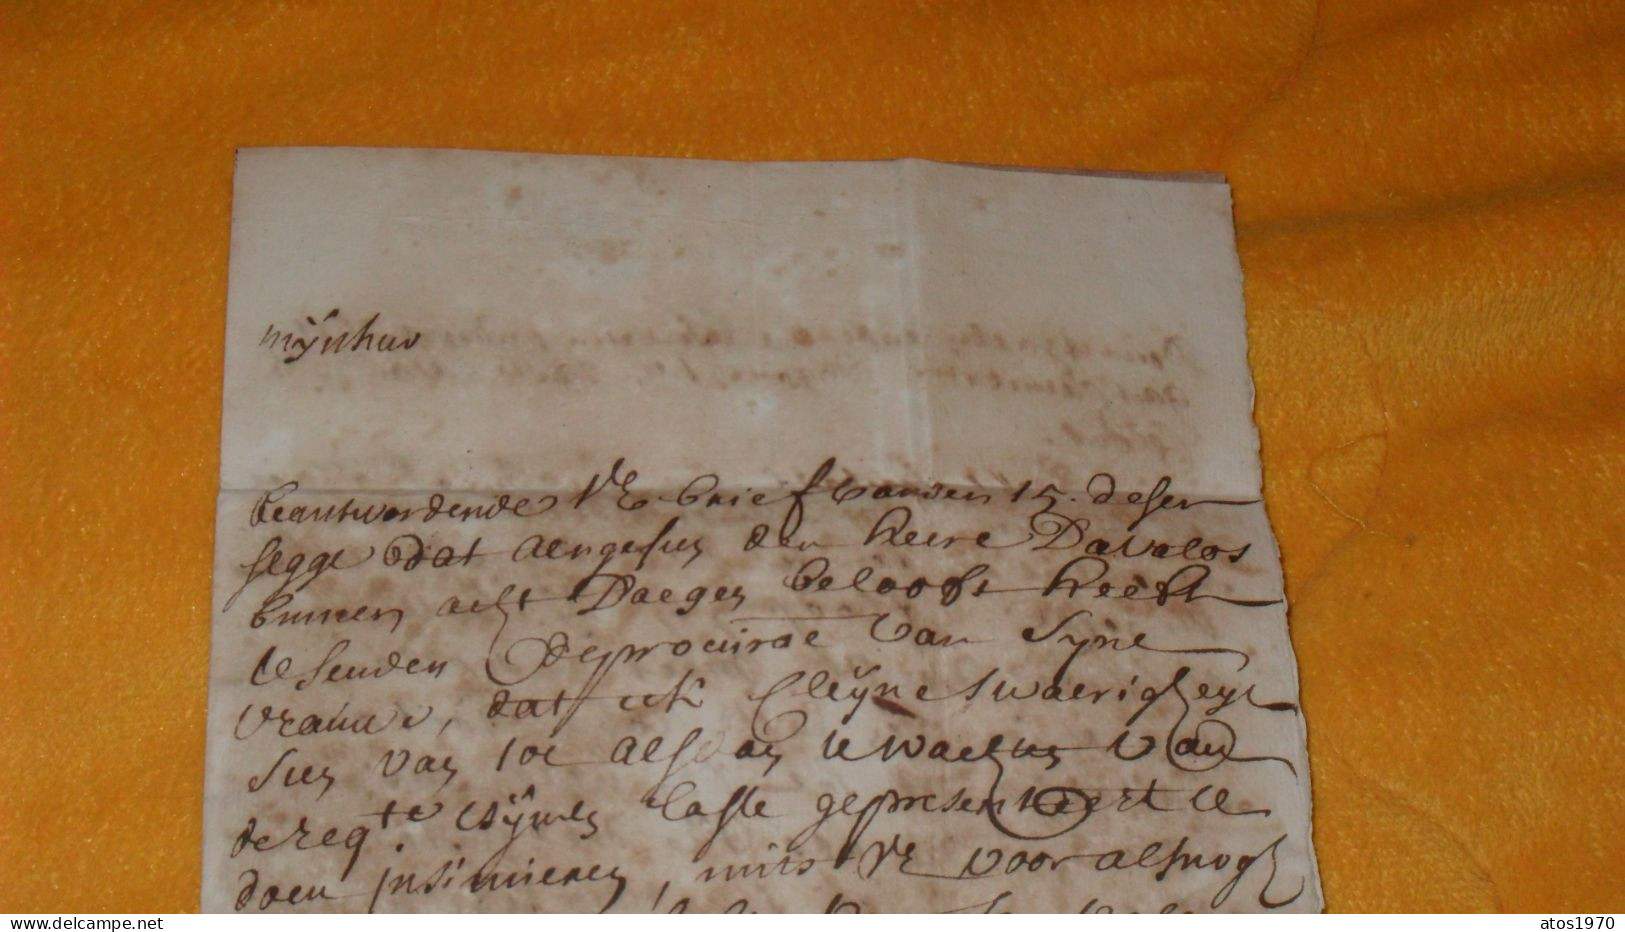 mijnheer
beantwordende VE brief vanden 15. deser
segge dat aengesien den heere Davalos
binnen acht Daegen belooft heeft
te senden de procuratie van Syne
vrauwe, dat ick cleyne swaericheyt
sien van tot alsdan te wachten van
de reqte. tsijnen laste gepresenteert te
doen insinueren, mits VE voor alsnogh
atos1970